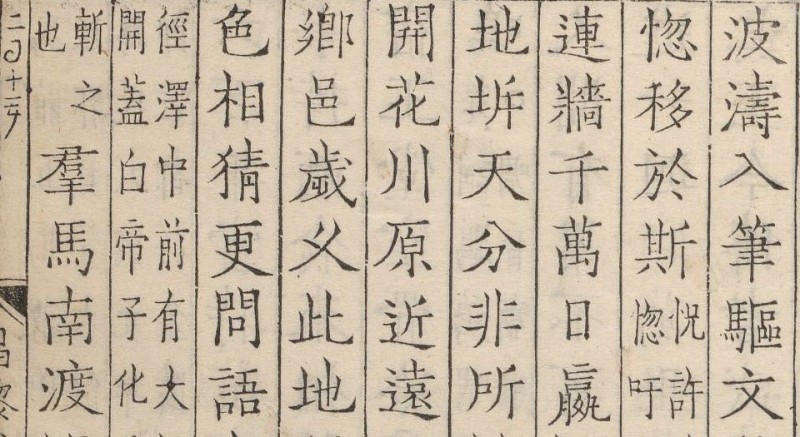 波濤入筆驅文
惚移於斯
怳許
惚吁
連牆千萬日嬴
地坼天分非所
開花川原近遠
鄉邑歲乂此地
色相猜更問語
徑澤中前有大
開蓋白帝子化
斬之
也
羣馬南渡